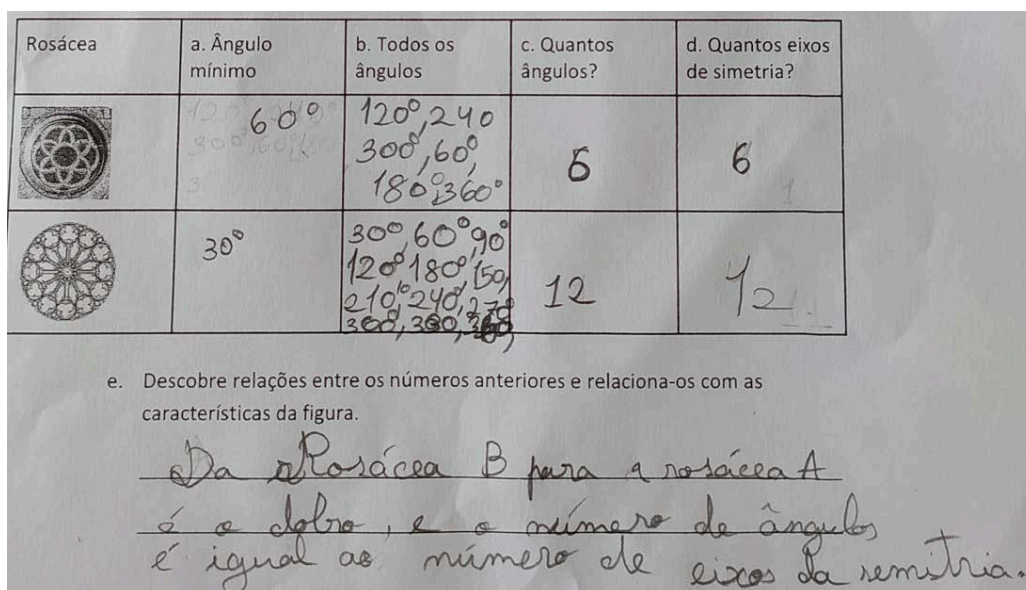 Rosácea
a. Ângulo
mínimo
b. Todos os
ângulos
c. Quantos
ângulos?
d. Quantos eixos
de simetria?
60°
120°, 240
300°, 60°,
180°, 360°
6
6
30°
30°, 60°, 90°
120° 180°, 150,
210, 240, 270
300,
12
12
e. Descobre relações entre os números anteriores e relaciona-os com as
características da figura.
Da Rosácea B para a rosácea A
é o dobro, e o número de ângulos
é igual ao número de eixos da semitria.